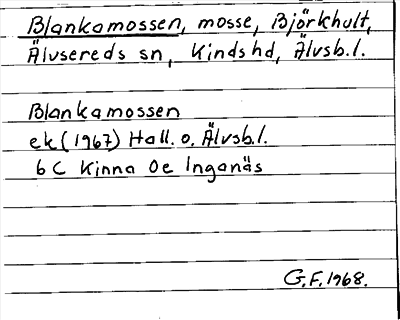 Blankamossen, mosse, Björkhult,
Älvsereds sn, Kinds hd, Älvsb.l.
Blankamossen
ek (1967) Hall. o. Älvsb.l.
6 C Kinna Oe Inganäs
G.F. 1968.